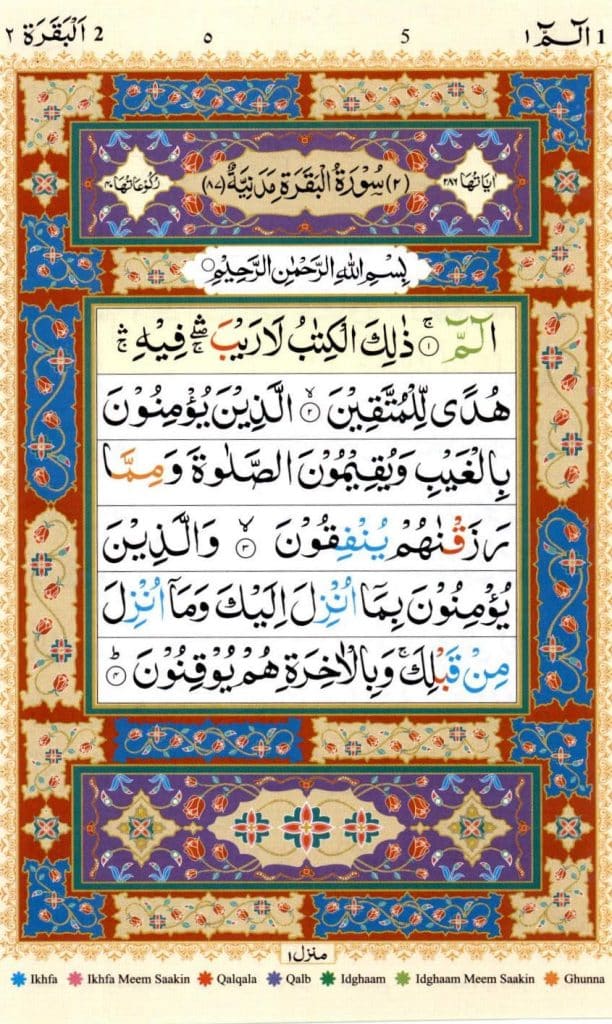 1 الٓمّٓ ١
5
٥
2 اَلْبَقَرَة ٢
اٰيَاتُهَا ٢٨٦
(٢) سُوْرَةُ الْبَقَرَةِ مَدَنِيَّةٌ (٨٧)
رُكُوْعَاتُهَا ٤٠
بِسْمِ اللّٰهِ الرَّحْمٰنِ الرَّحِيْمِ
الٓمّٓ ۚ ١ ذٰلِكَ الْكِتٰبُ لَا رَيْبَ ۛۖ ۚ فِيْهِ ۛۚ
هُدًى لِّلْمُتَّقِيْنَ ۙ ٢ الَّذِيْنَ يُؤْمِنُوْنَ
بِالْغَيْبِ وَيُقِيْمُوْنَ الصَّلٰوةَ وَمِمَّا
رَزَقْنٰهُمْ يُنْفِقُوْنَ ۙ ٣ وَالَّذِيْنَ
يُؤْمِنُوْنَ بِمَآ اُنْزِلَ اِلَيْكَ وَمَآ اُنْزِلَ
مِنْ قَبْلِكَ ۚ وَبِالْاٰخِرَةِ هُمْ يُوْقِنُوْنَ ؕ ٤
منزل ١
Ikhfa Ikhfa Meem Saakin Qalqala Qalb Idghaam Idghaam Meem Saakin Ghunna